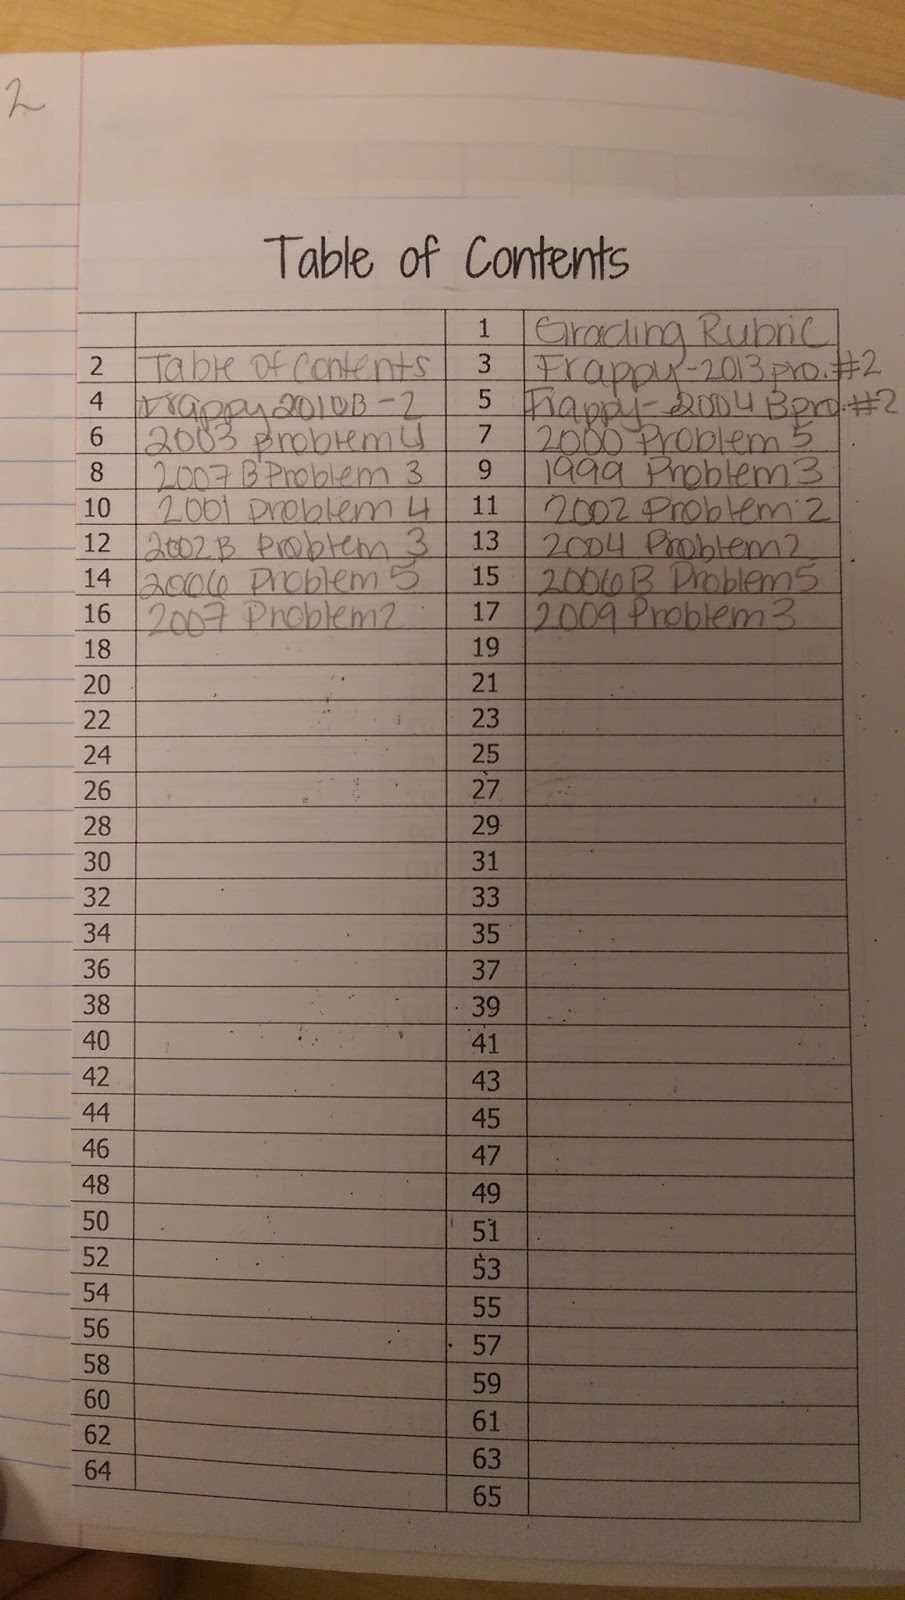 2
Table of Contents
1 Grading Rubric
2 Table of Contents 3 Frappy-2013 pro.#2
4 Frappy 2010B-2 5 Frappy-2004 B pro.#2
6 2003 Problem 4 7 2000 Problem 5
8 2007 B Problem 3 9 1999 Problem 3
10 2001 problem 4 11 2002 Problem 2
12 2002B Problem 3 13 2004 Problem 2
14 2006 Problem 5 15 2006B Problem 5
16 2007 Problem 2 17 2009 Problem 3
18 19
20 21
22 23
24 25
26 27
28 29
30 31
32 33
34 35
36 37
38 39
40 41
42 43
44 45
46 47
48 49
50 51
52 53
54 55
56 57
58 59
60 61
62 63
64 65